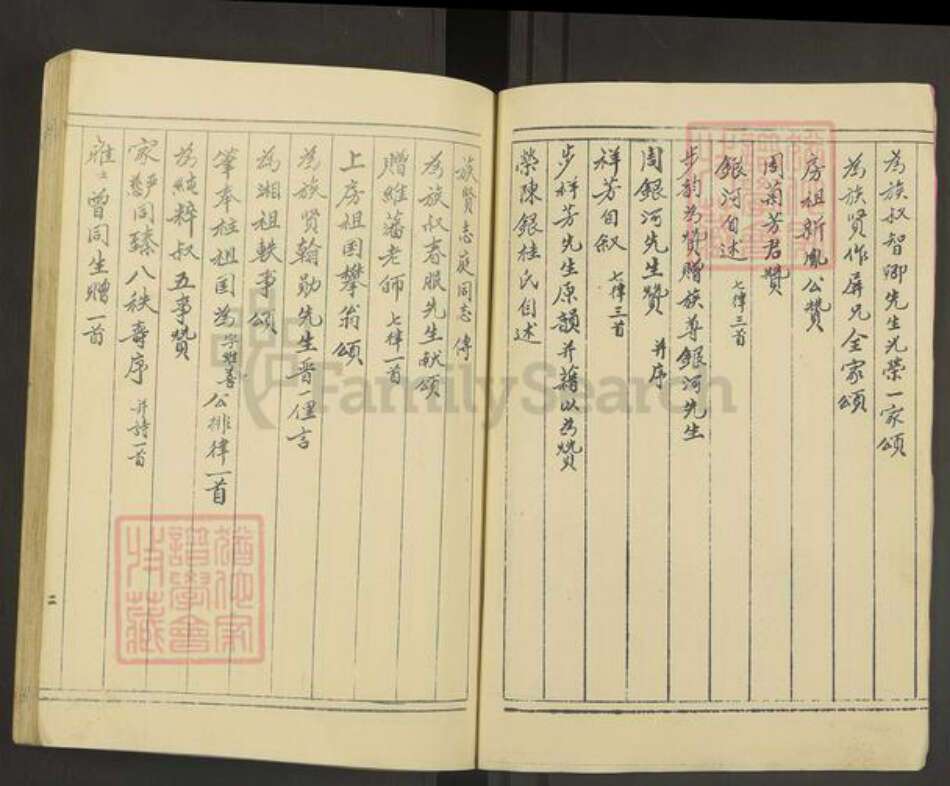 為族叔智卿先生光榮一家頌
為族賢作屏兄全家頌
房祖新鳳公贊
周菊芳君贊
銀河自述 七律三首
步韵為贊贈族尊銀河先生
周銀河先生贊 并序
祥芳自叙 七律三首
步祥芳先生原韻并藉以為贊
榮陳銀桂氏自述
族賢志庭同志傳
為族叔春服先生献頌
贈維藩老师 七律一首
上房祖国攀翁頌
為族賢翰勋先生晋一僅言
為湘祖軼事頌
肇奉柱祖国為字雅善公排律一首
為純粹叔五事贊
家嚴慈同臻八秩壽序 并詩一首
曾同生贈一首
二
譜學會
收藏
FamilySearch